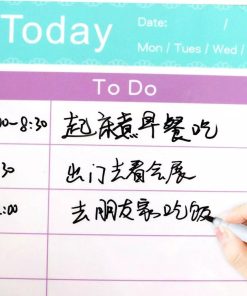 Today
Date: /
Mon / Tues / Wed /
To Do
0-8:30 起床煮早餐吃
30 出门去看会展
:00 去朋友家吃饭